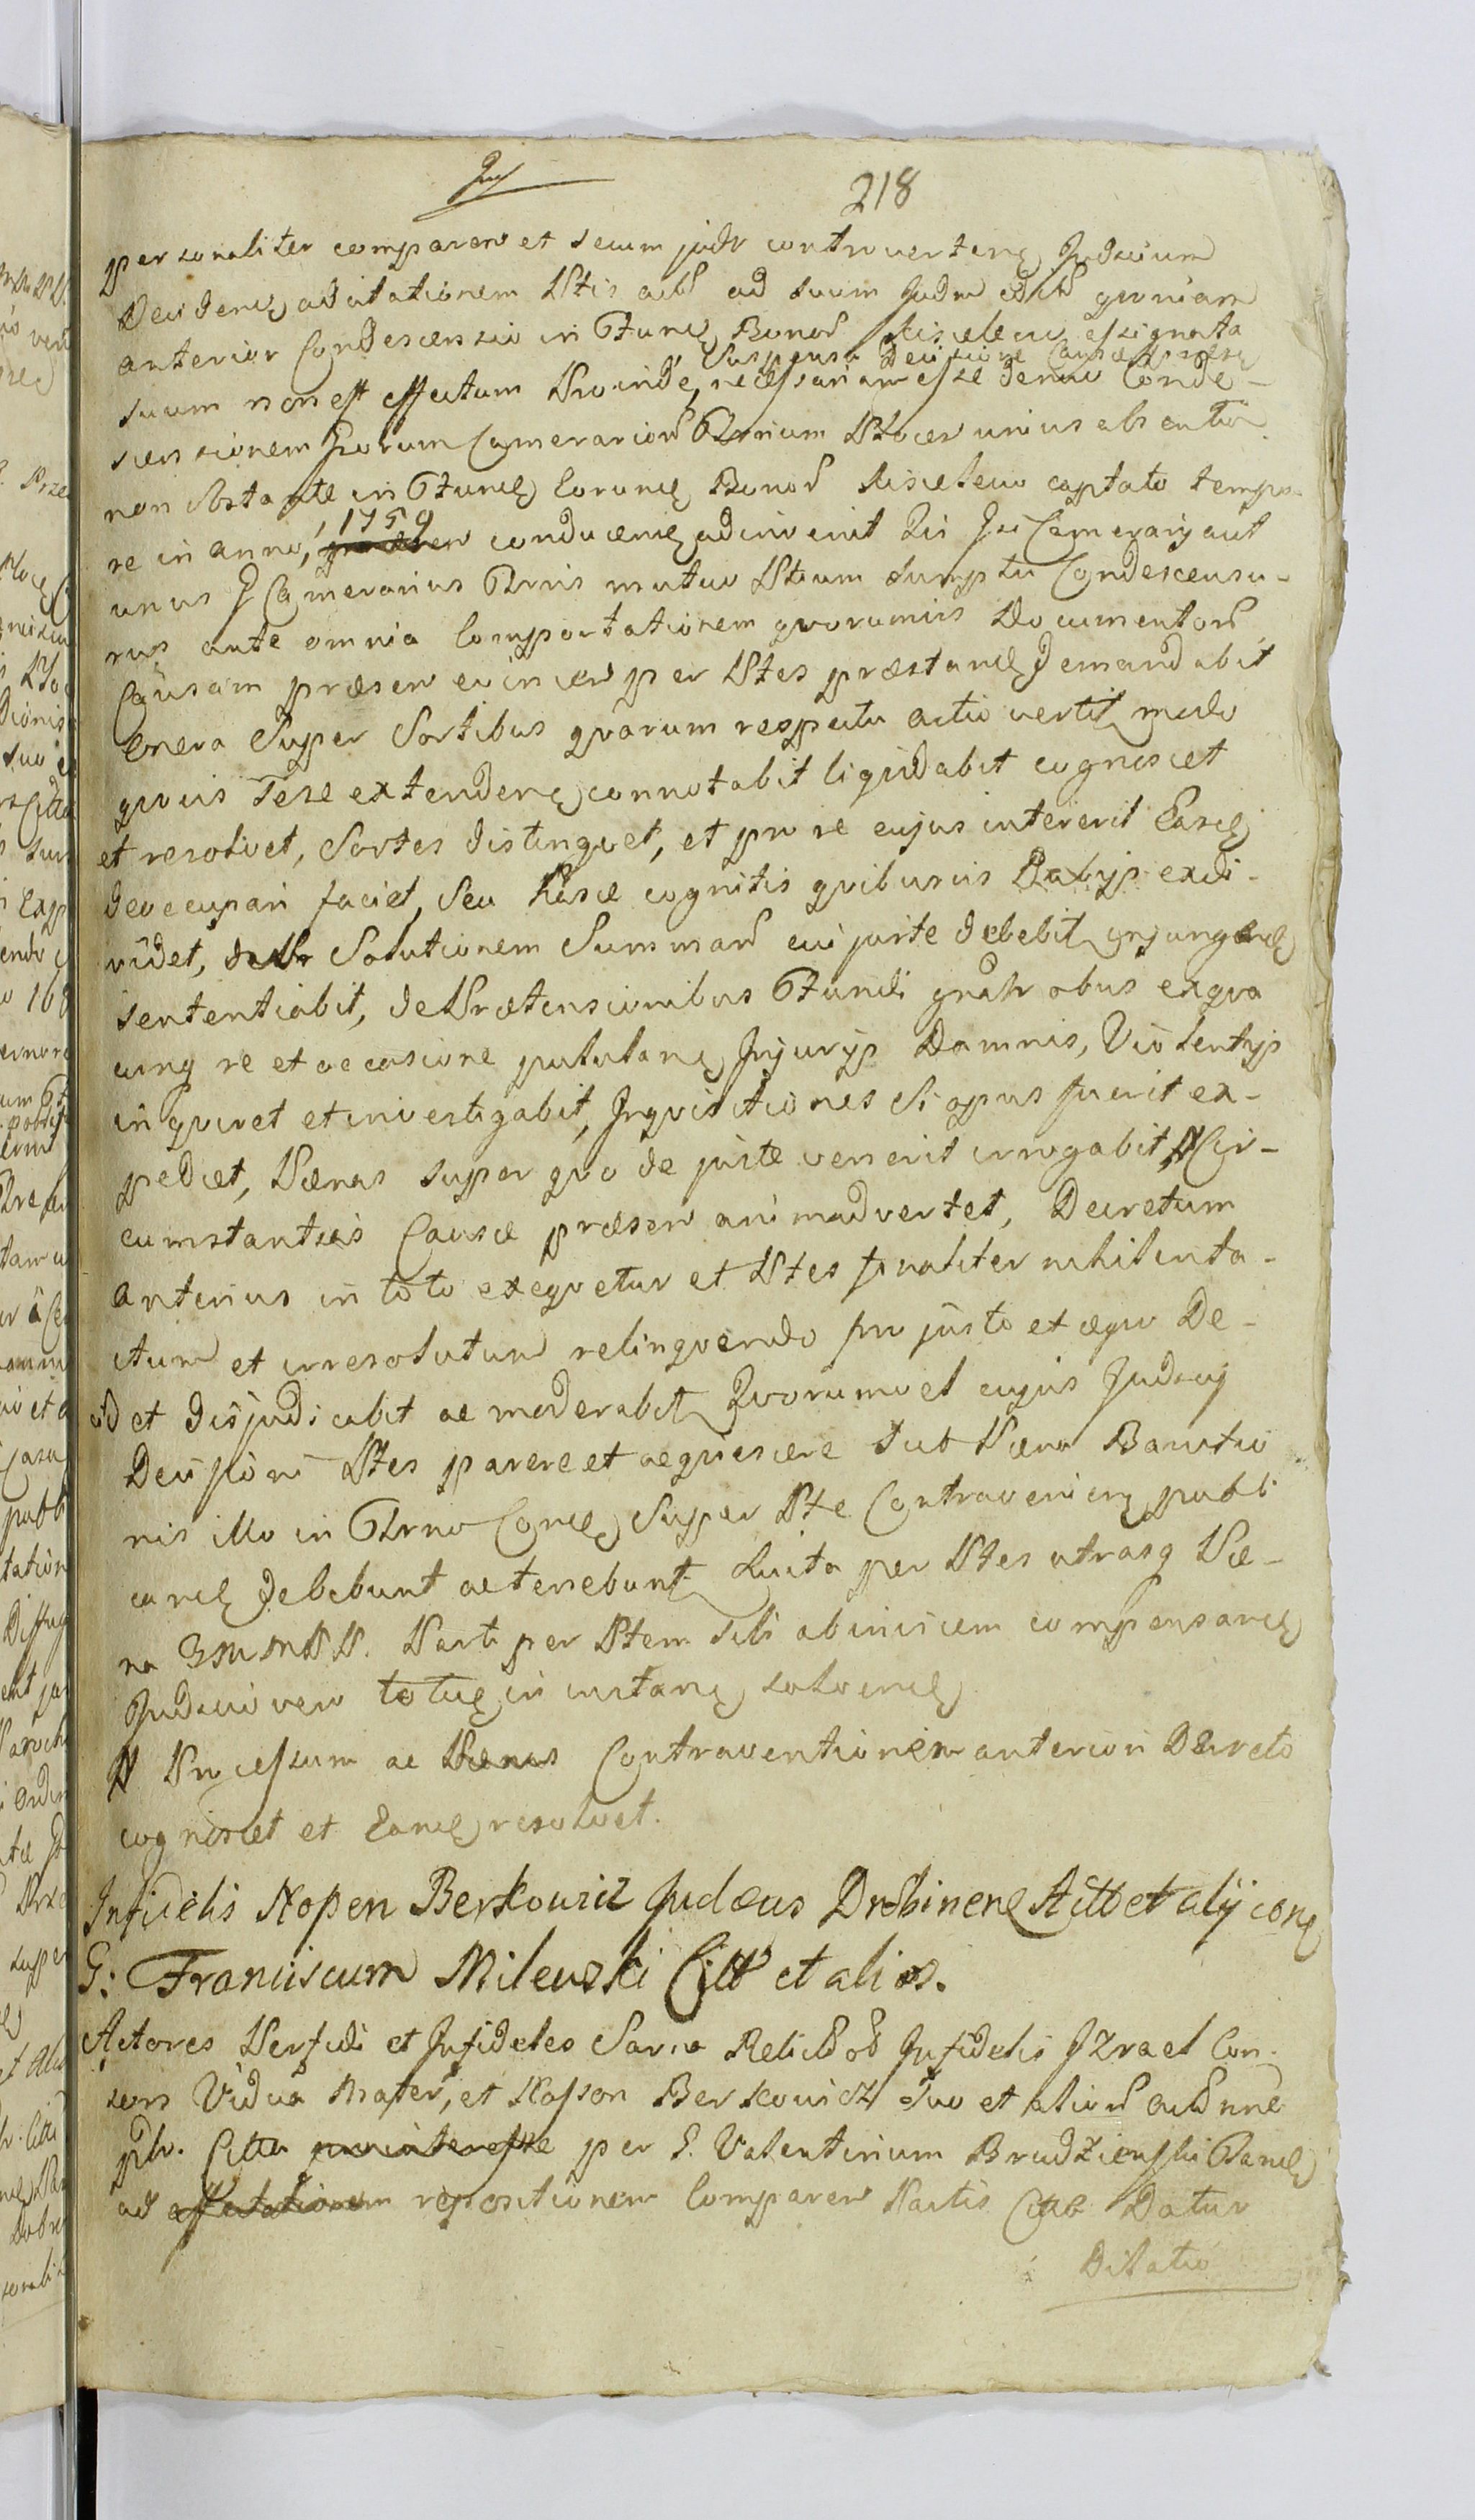 218
personaliter comparen et secum judr controverten Judicium
Decidend ad citationem Ptis act ad suum Judm quoniam
anterior Condescensio in Fund Bonor essignata
Suspensa Decisione Causae praesen
suum non est effectum Proinde, necessariam esse denuo Conde-
scensionem Camerarior Terrium unius absentia
non obstante in Fund eorund Bonor captato tempo-
re in anno, 1759 conducen adinvenit Camerarij aut
unus Camerarius Trris mutuo Ptium sumptu Condescensu-
rus ante omnia Comportationem quorumvis Documentor
Causam praesen evincen per Ptes praestand demandabit
onera super Sortibus quarum respectu actio vertit modo
quovis sese extenden connotabit liquidabit cognoscet
et resolvet, Sortes distinguet, et pro re cujus intererit Easd
deoccupari faciet, Seu Rasce cognitis quibusvis exdi-
videt, Solutionem Summar cui juste debebit injungend
sententiabit, de Praetensionibus Fundi exqua
cunq re et occasione pululan Injurijs Damnis, Violentijs
inquiret et investigabit, Inquisitiones Si opus fuerit ex-
pediet, Paenas super quo de jure venerit irrogabit, Cir-
cumstantias Causae praesen animadvertet, Decretum
anterius in toto exequetur et Ptes finaliter nihil inta-
ctum et irresolutum relinquendo pro justo et aequo De-
cid et disjudicabit ac moderabit Quorumvel cujus Judicij
Decisioni Ptes parere et acquiescere sub Paena Banitio
nis illo in Trmo Cond super Pte Contravenien publi
cand debebunt ac tenebunt Luita per Ptes utrasq Pae-
na 3M MPP. Parti per Ptem sibi abinvicem compensand
Judicio vero toties in instan solvend
Processum ac Paenas Contraventionem anteriori Decreto
cognoscet et Eand resolvet.
Infidelis Kopen Berkowicz Judaeus Drobinen Act et alij con
G: Franciscum Milewski Citt et alios.
Actores Perfidi et Infideles Sarna Relict od Infidelis Izrael Con-
sors Vidua Mater, et Kapsan Berkowicz Suo et alior act nne
ptr. Citta pro interesse per G. Valentinum Brudzienski
ad affectationem repositionem Comparen Partis Citte Datur
Dilatio